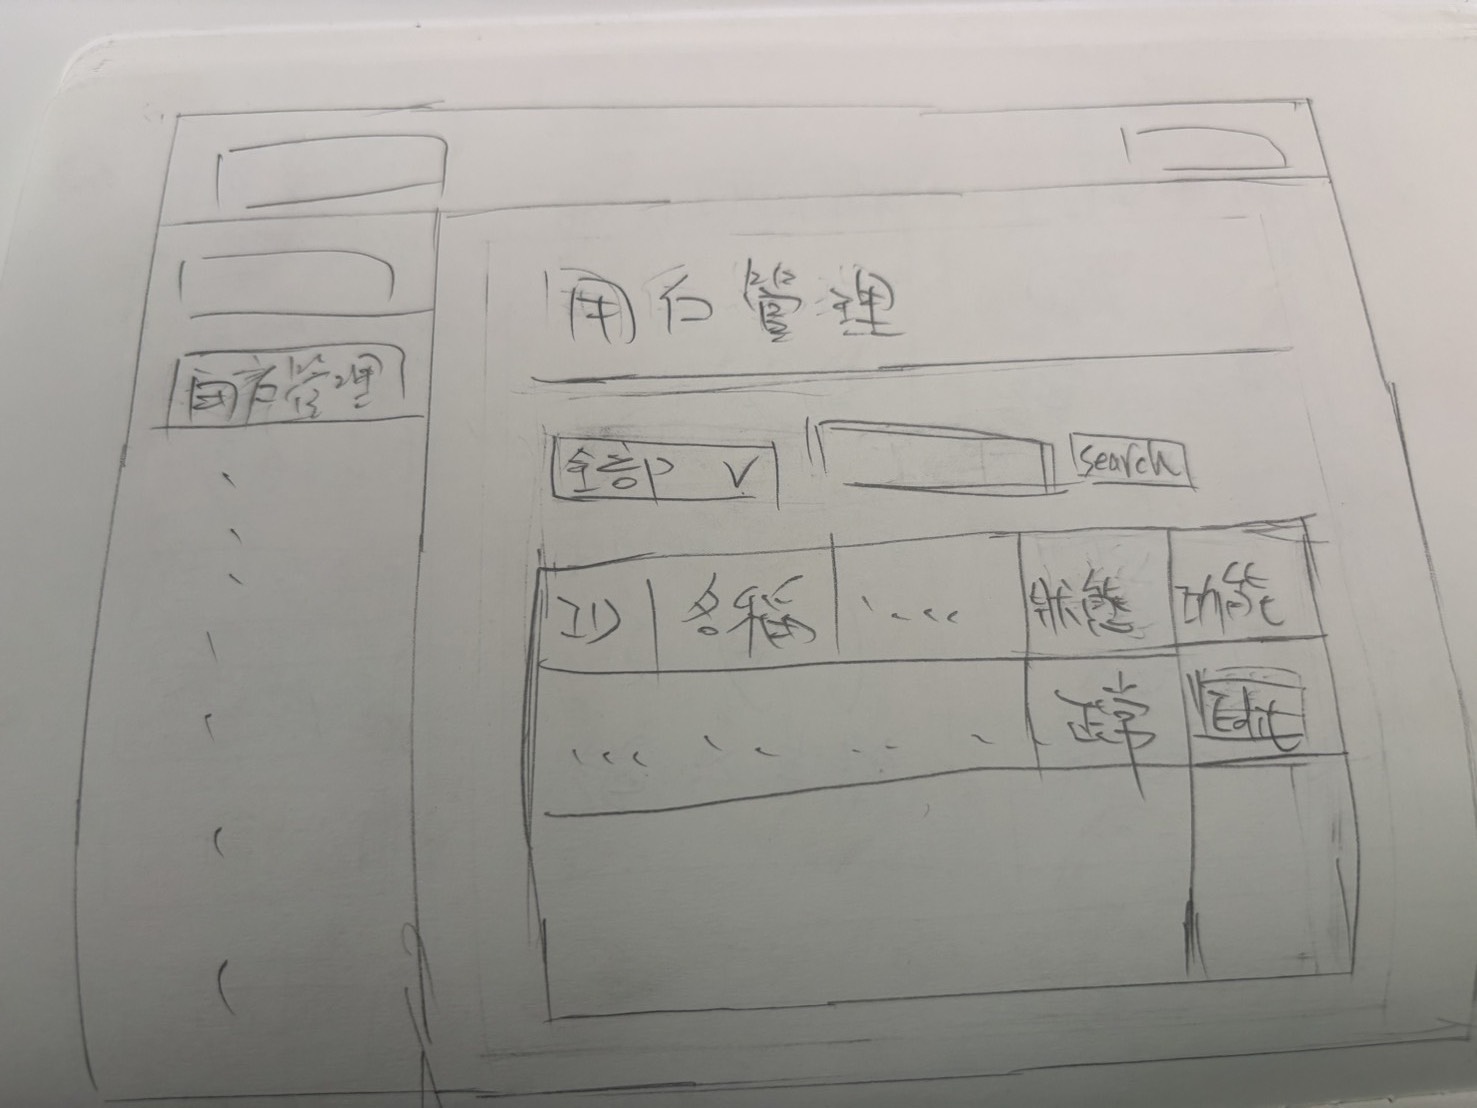 用户管理
用户管理
全部 V
search
ID 名稱 .... 狀態 功能
... .. .. . . 正常 Edit